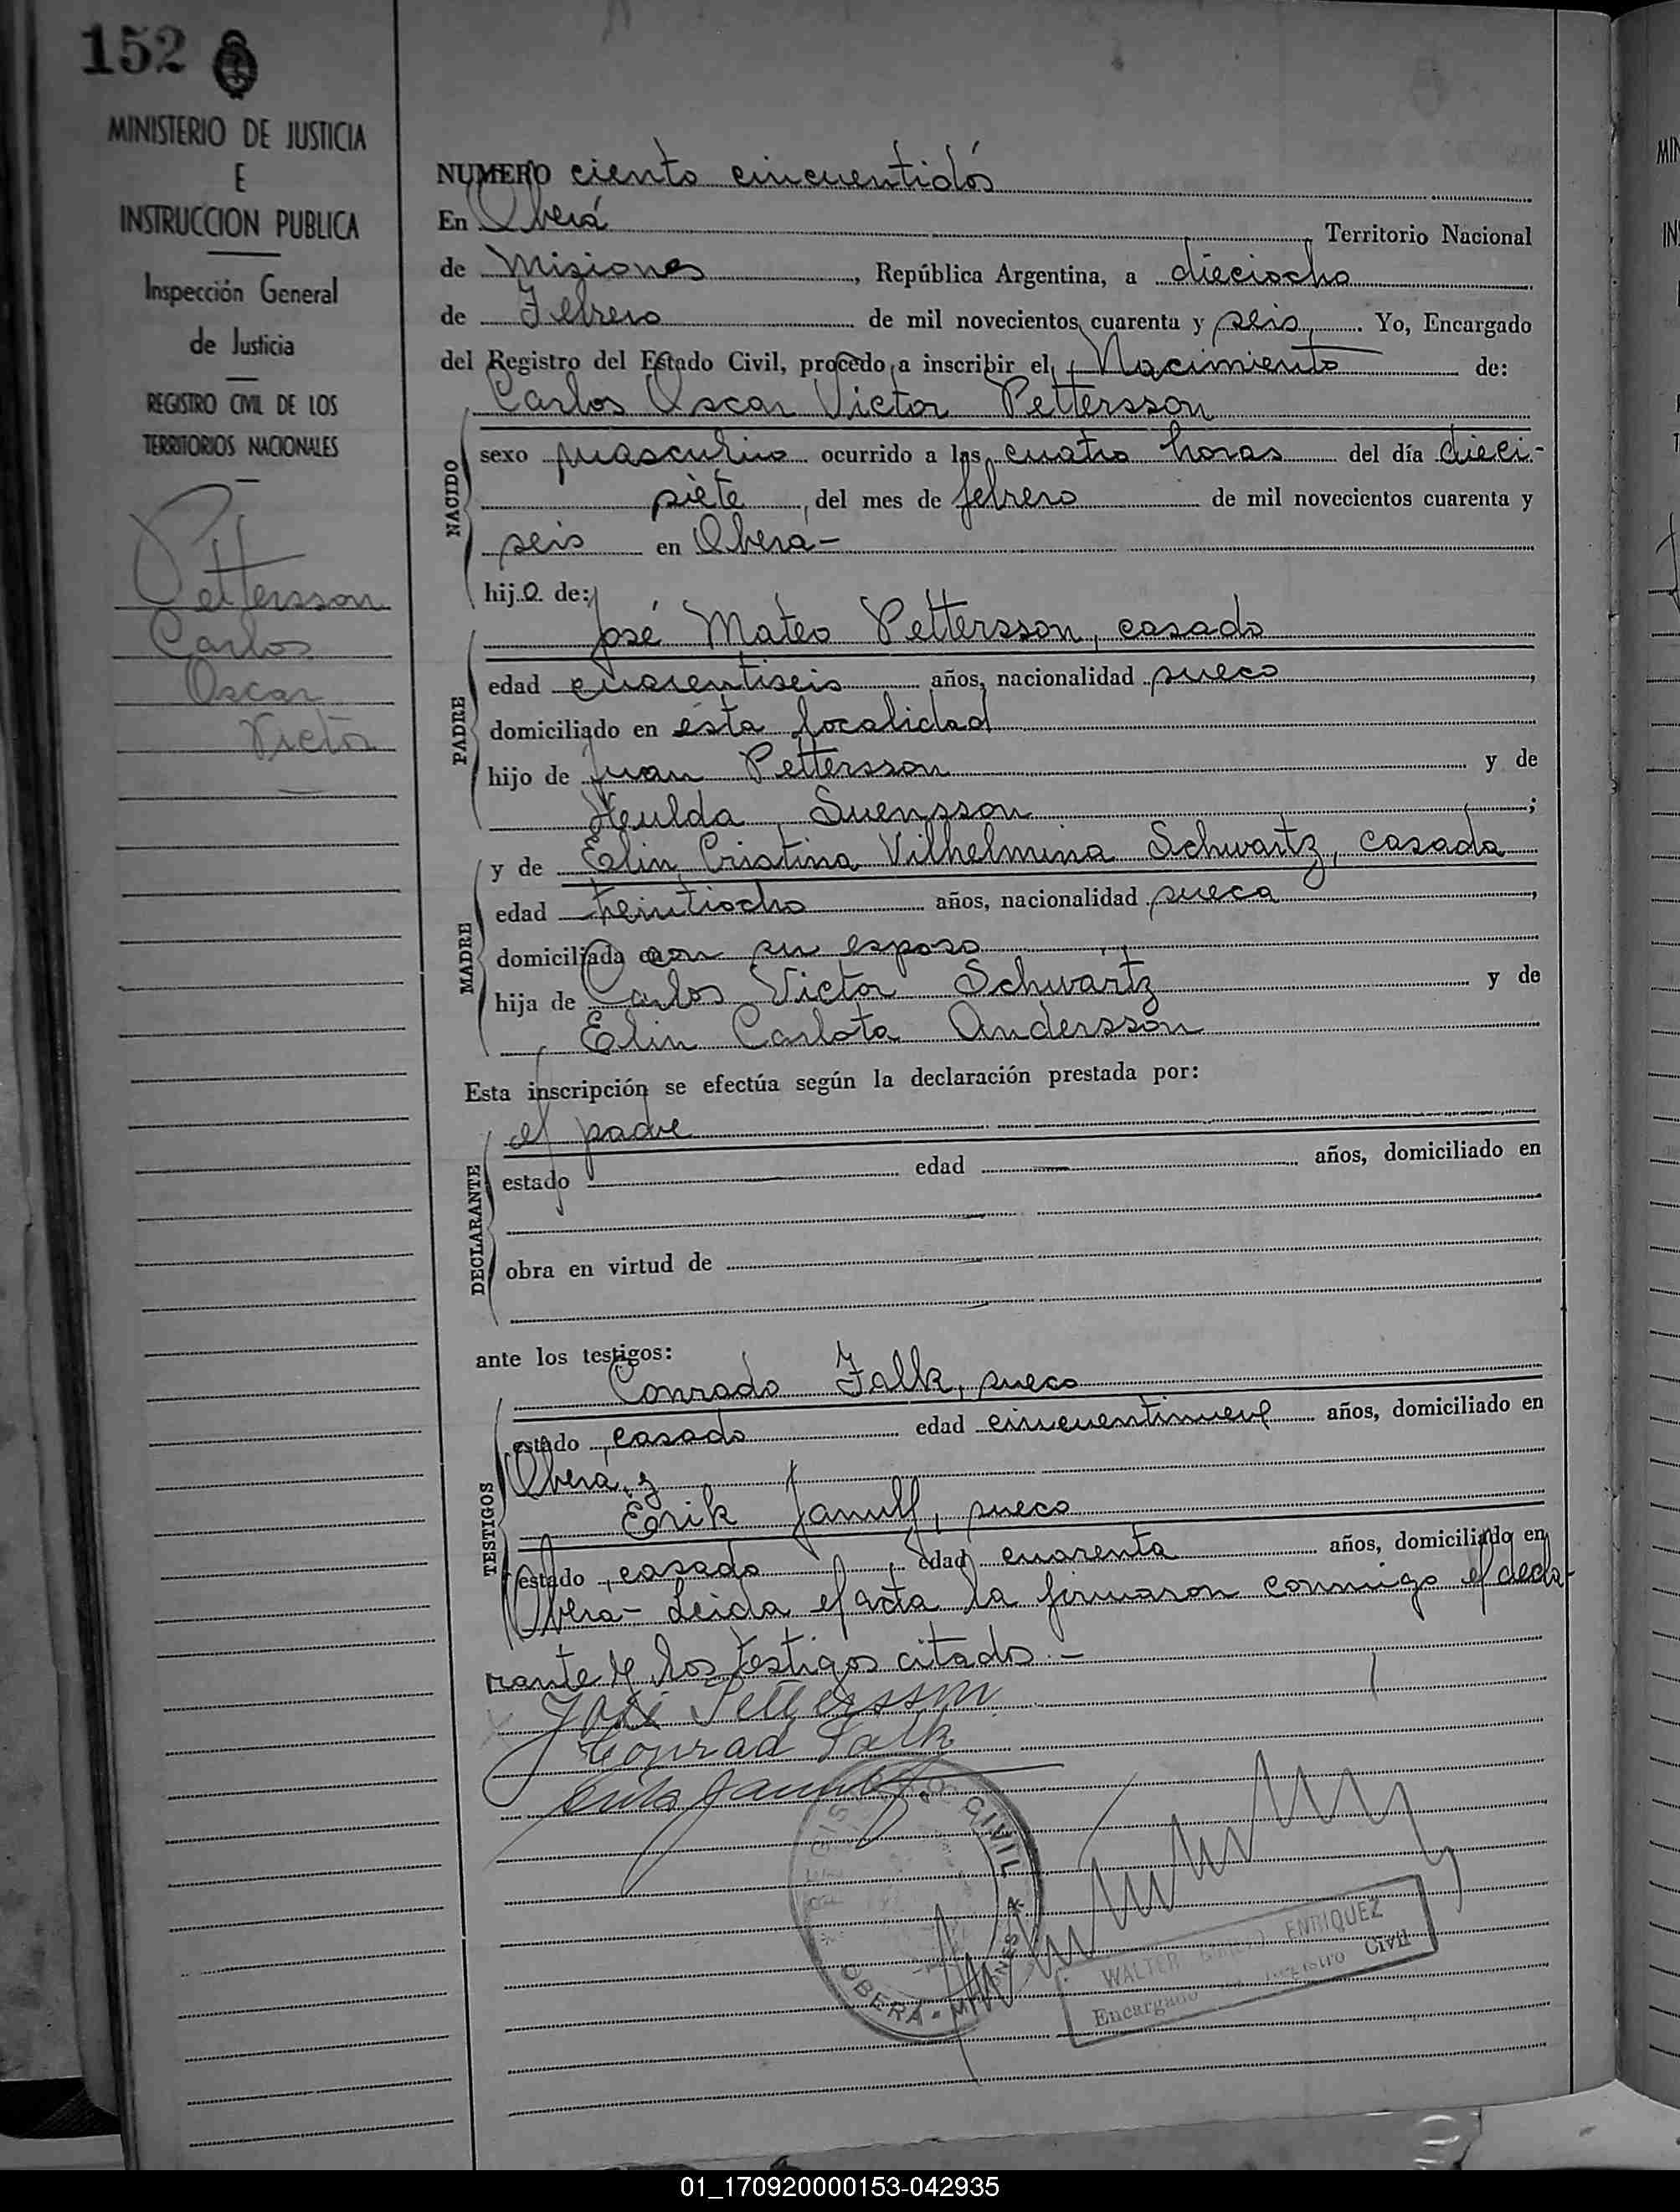 152
MINISTERIO DE JUSTICIA
E
INSTRUCCION PUBLICA
Inspección General
de Justicia
REGISTRO CIVIL DE LOS
TERRITORIOS NACIONALES
Pettersson
Carlos
Oscar
Victor
NUMERO ciento cincuentidós
En Oberá Territorio Nacional
de Misiones, República Argentina, a dieciocho
de Febrero de mil novecientos cuarenta y seis. Yo, Encargado
del Registro del Estado Civil, procedo a inscribir el Nacimiento de:
Carlos Oscar Victor Pettersson
NACIDO
sexo masculino ocurrido a las cuatro horas del día dieci-
siete, del mes de febrero de mil novecientos cuarenta y
seis en Oberá-
hijo de:
PADRE
José Mateo Pettersson, casado
edad cuarentiseis años, nacionalidad sueco,
domiciliado en ésta localidad
hijo de Juan Pettersson y de
Hulda Suensson;
MADRE
y de Elin Cristina Vilhelmina Schwartz, casada
edad treintiocho años, nacionalidad sueca,
domiciliada con su esposo
hija de Carlos Victor Schwartz y de
Elin Carlota Andersson
Esta inscripción se efectúa según la declaración prestada por:
DECLARANTE
el padre
estado edad años, domiciliado en
obra en virtud de
ante los testigos:
TESTIGOS
Conrado Falk, sueco
estado casado edad cincuentinueve años, domiciliado en
Oberá, y
Erik Janulf, sueco
estado casado edad cuarenta años, domiciliado en
Oberá- Leida el acta la firmaron conmigo el decla-
rante y los testigos citados.-
José Pettersson
Conrad Falk
Erik Janulf
CIVIL
OBERA - MISIONES
WALTER ENRIQUEZ
Encargado Registro Civil
01_170920000153-042935